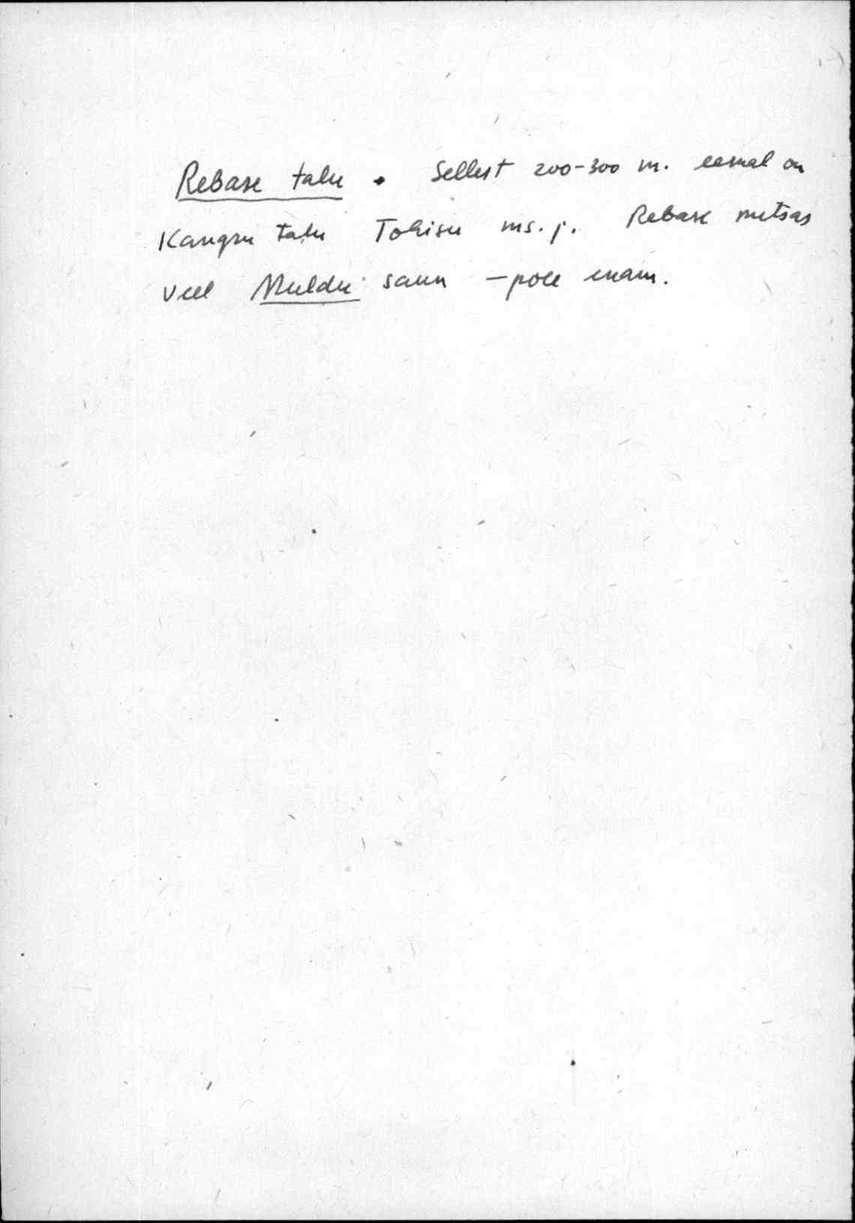 Rebase talu. Sellest 200-300 m. eemal on
Kangru talu Tohisu ms. j. Rebase metsas
veel Muldu saun - pole enam.